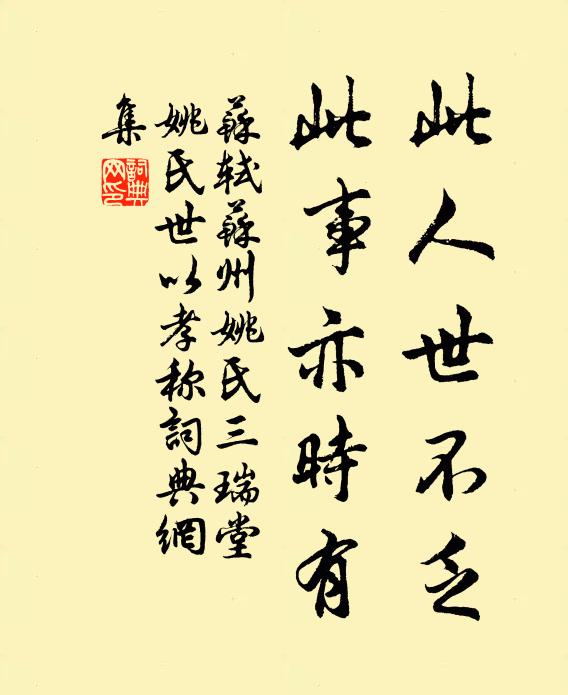 此人世不乏
此事亦時有
蘇軾蘇州姚氏三瑞堂
姚氏世以孝称詞典網
集
詞典
网印